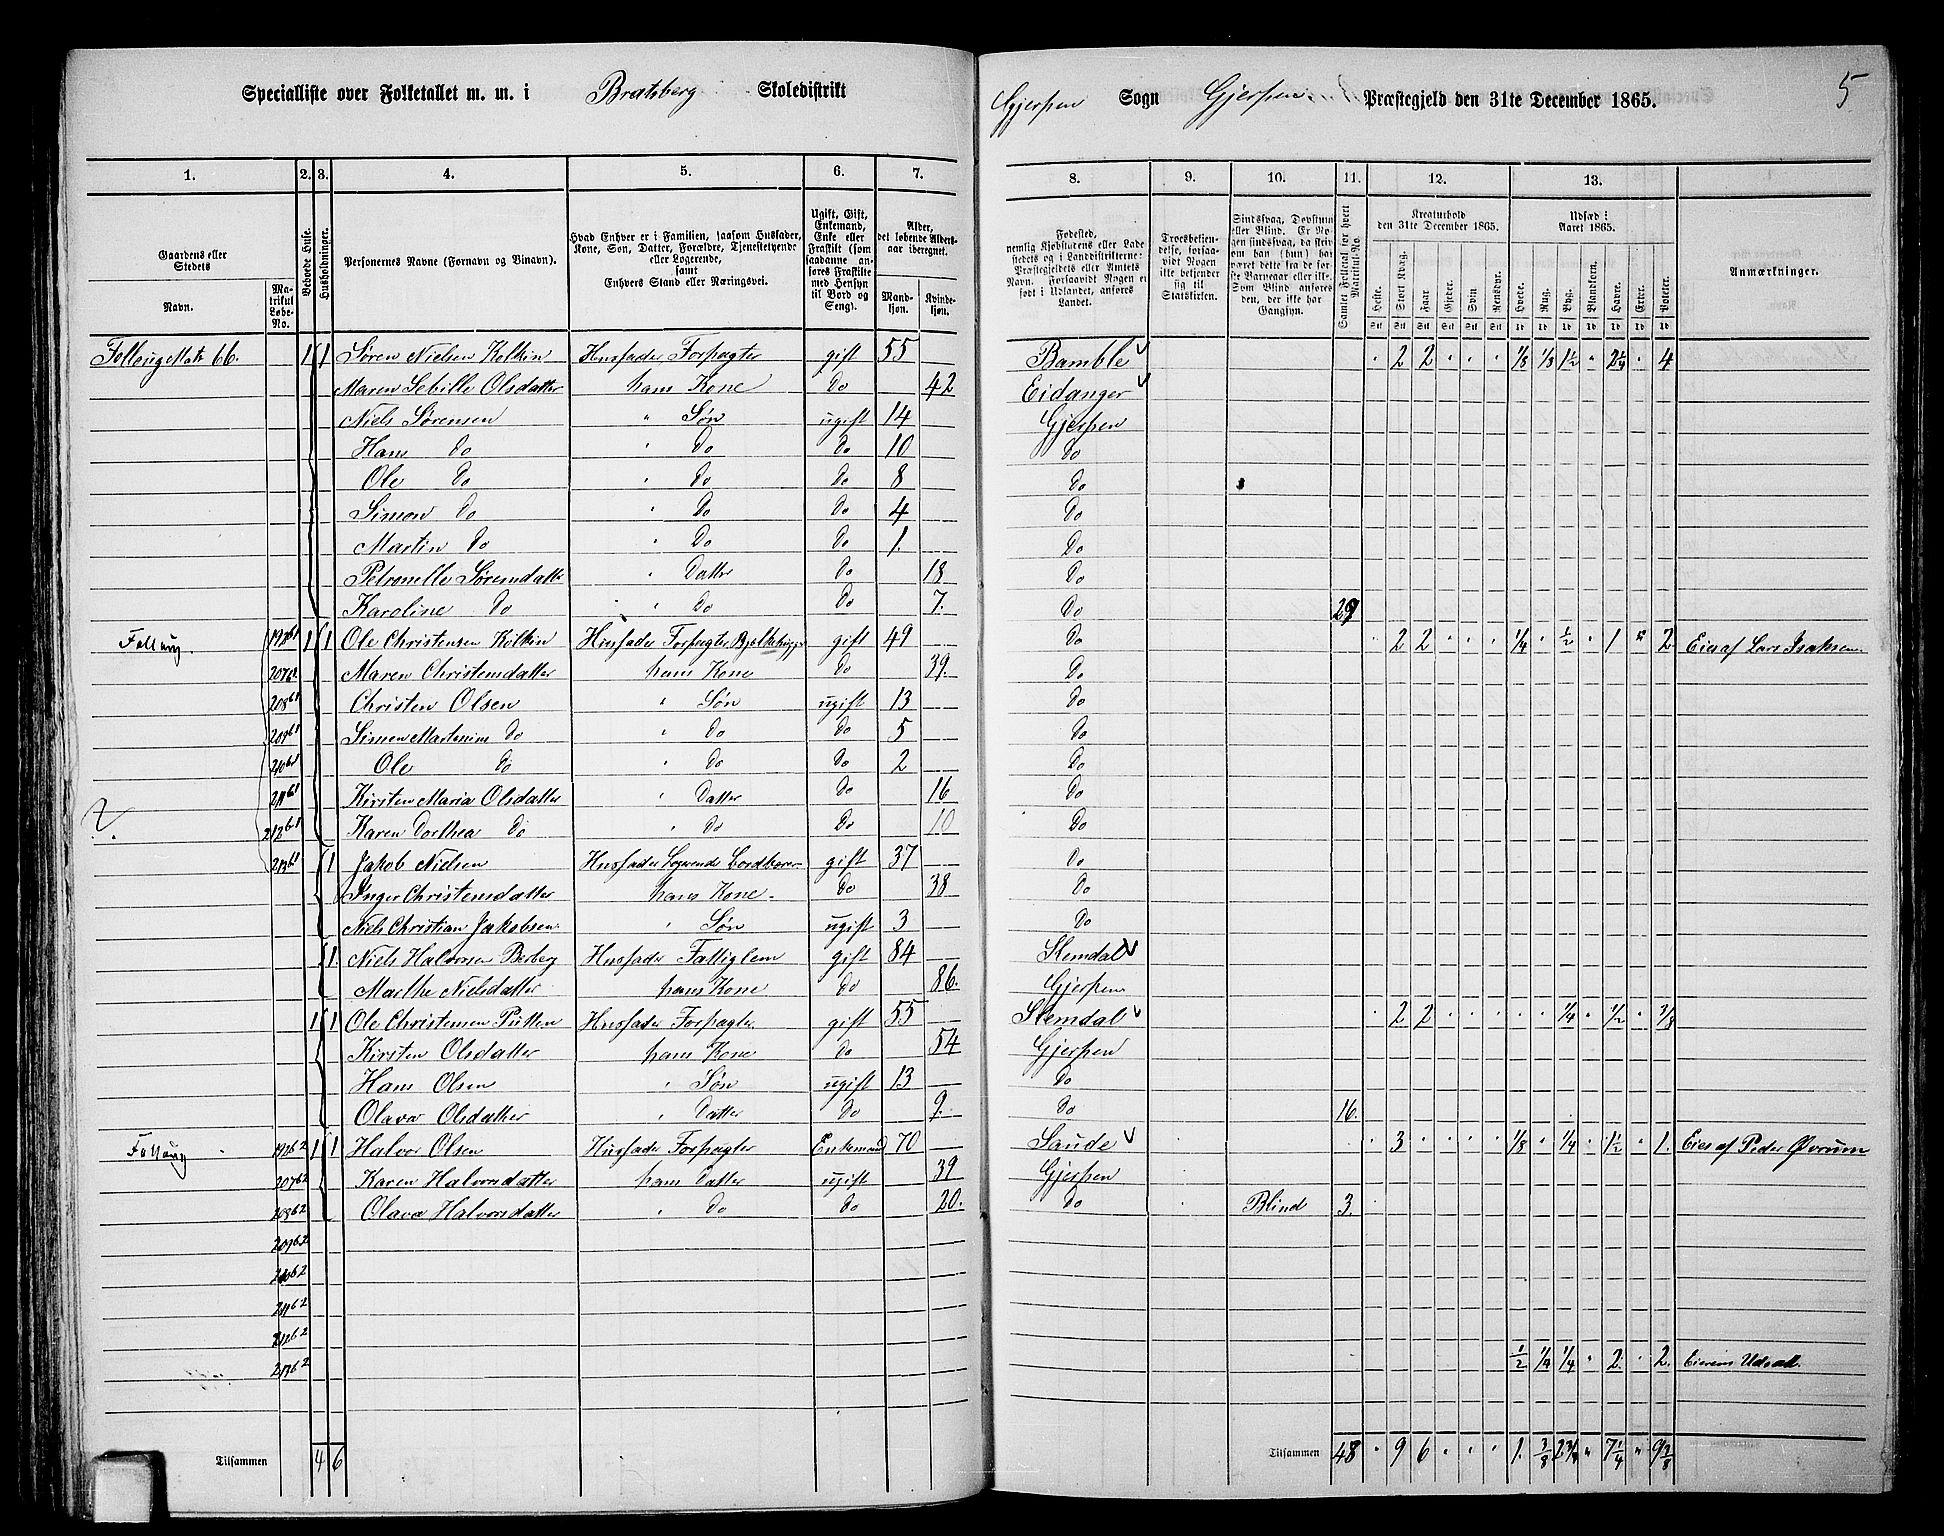 Specialliste over Folketallet m. m. i Bratsberg Skoledistrikt Gjerpen Sogn Gjerpen Præstegjeld den 31te December 1865. 5
1. 2. 3. 4. 5. 6. 7. 8. 9. 10. 11. 12. 13.
Gaardens eller Stedets Navn. Matrikul Løbe-No. Beboede Huse. Husholdninger. Personernes Navne (Fornavn og Binavn). Hvad Enhver er i Familien, saasom Husfader, Kone, Søn, Datter, Forældre, Tjenestetyende eller Logerende, samt Enhvers Stand eller Næringsvei. Ugift, Gift, Enkemand, Enke eller Fraskilt (som saadanne anføres Fraskilte med Hensyn til Bord og Seng). Alder, det løbende Alders-aar iberegnet. Mandkjøn. Kvindekjøn.
Fødested, nemlig Kjøbstadens eller Ladestedets og i Landdistrikterne: Præstegjeldets eller Amtets Navn. Forsaavidt Nogen er født i Udlandet, anføres Landet. Troesbekjendelse, forsaavidt Nogen ikke bekjender sig til Statskirken. Sindssvag, Døvstum eller Blind. Samlet Folketal for hvert Matrikul-No. Kreaturhold den 31te December 1865. Heste. Stort Kvæg. Faar. Gjeder. Svin. Rensdyr. Udsæd i Aaret 1865. Hvede. Rug. Byg. Blandkorn. Havre. Erter. Poteter. Anmærkninger.
Follaug Matr 66. 1 1 Søren Nielsen Kolkin Husfader Forpagter gift 55 Bamble 2 2 1/8 1/8 1 1/2 2 1/4 4
Maren Sebille Olsdatter hans Kone Do 42 Eidanger
Niels Sørensen " Søn ugift 14 Gjerpen
Hans Do " Do Do 10 Do
Ole Do " Do Do 8 Do
Simon Do " Do Do 4 Do
Martin Do " Do Do 1. Do
Petronelle Sørensdatter " Datter Do 18 Do
Karoline Do " Do Do 7. Do 29
Follaug. 1 1 Ole Christensen Kolkin Husfader Forpagter Bjelkehugger gift 49 Do 2 2 1/4 " 1/2 " 1 " 2 Eies af Lars Isaksen.
Maren Christensdatter hans Kone Do 39. Do
208 61 Christen Olsen " Søn ugift 13 Do
209 61 Simen Martinius Do " Do Do 5 Do
Ole Do " Do Do 2 Do
211 61 Kirsten Maria Olsdatter " Datter Do 16 Do
? 212 61 Karen Dorthea Do " Do Do 10 Do
1 Jakob Nielsen Husfader Logerende gift 37 Do
Inger Christensdatter hans Kone. Do 38 Do
Niels Christian Jakobsen " Søn ugift 3 Do
1. Niels Halvorsen Berberg Husfader Fattiglem gift 84 Slemdal
Marthe Nielsdatter hans Kone Do 86. Gjerpen
1 1 Ole Christensen Putten Husfader Forpagter gift 55 Slemdal 2 2 1/4 1/2 3/8
Kirsten Olsdatter hans Kone Do 54 Gjerpen
Hans Olsen " Søn ugift 13 Do
Olava Olsdatter " Datter Do 9. Do 16.
Follaug 1 1 Halvor Olsen Husfader Forpagter Enkemand 70 Saude 3 1/8 " 1/4 " 1 1/2 " 1. Eies af Peder Øvrum
207 62 Karen Halvorsdatter hans Datter ugift 39 Gjerpen
208 62 Olava Halvorsdatter " Do Do 20. Do Blind 3.
209 62
210 62
211 62
212 62
213 62 1/2 1/4 1/4 " 2. " 2. Eierens Udsæd.
Tilsammen 4 6 Tilsammen 48 " 9 6 1. 3/8 2 3/4 " 7 1/4 " 9 3/8